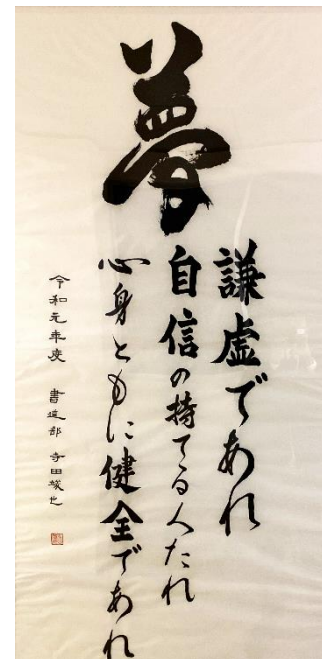 夢
謙虚であれ
自信の持てる人たれ
心身ともに健全であれ
令和元年度 書道部 寺田峻也